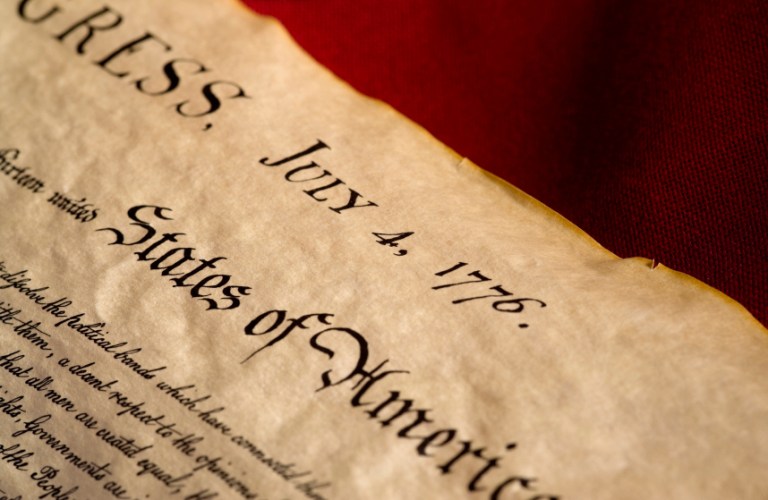 GRESS, JULY 4, 1776.
thirteen united States of America
dissolve the political bands which have connected them
them, a decent respect to the opinions
that all men are created equal, th
Governments are in
of the People